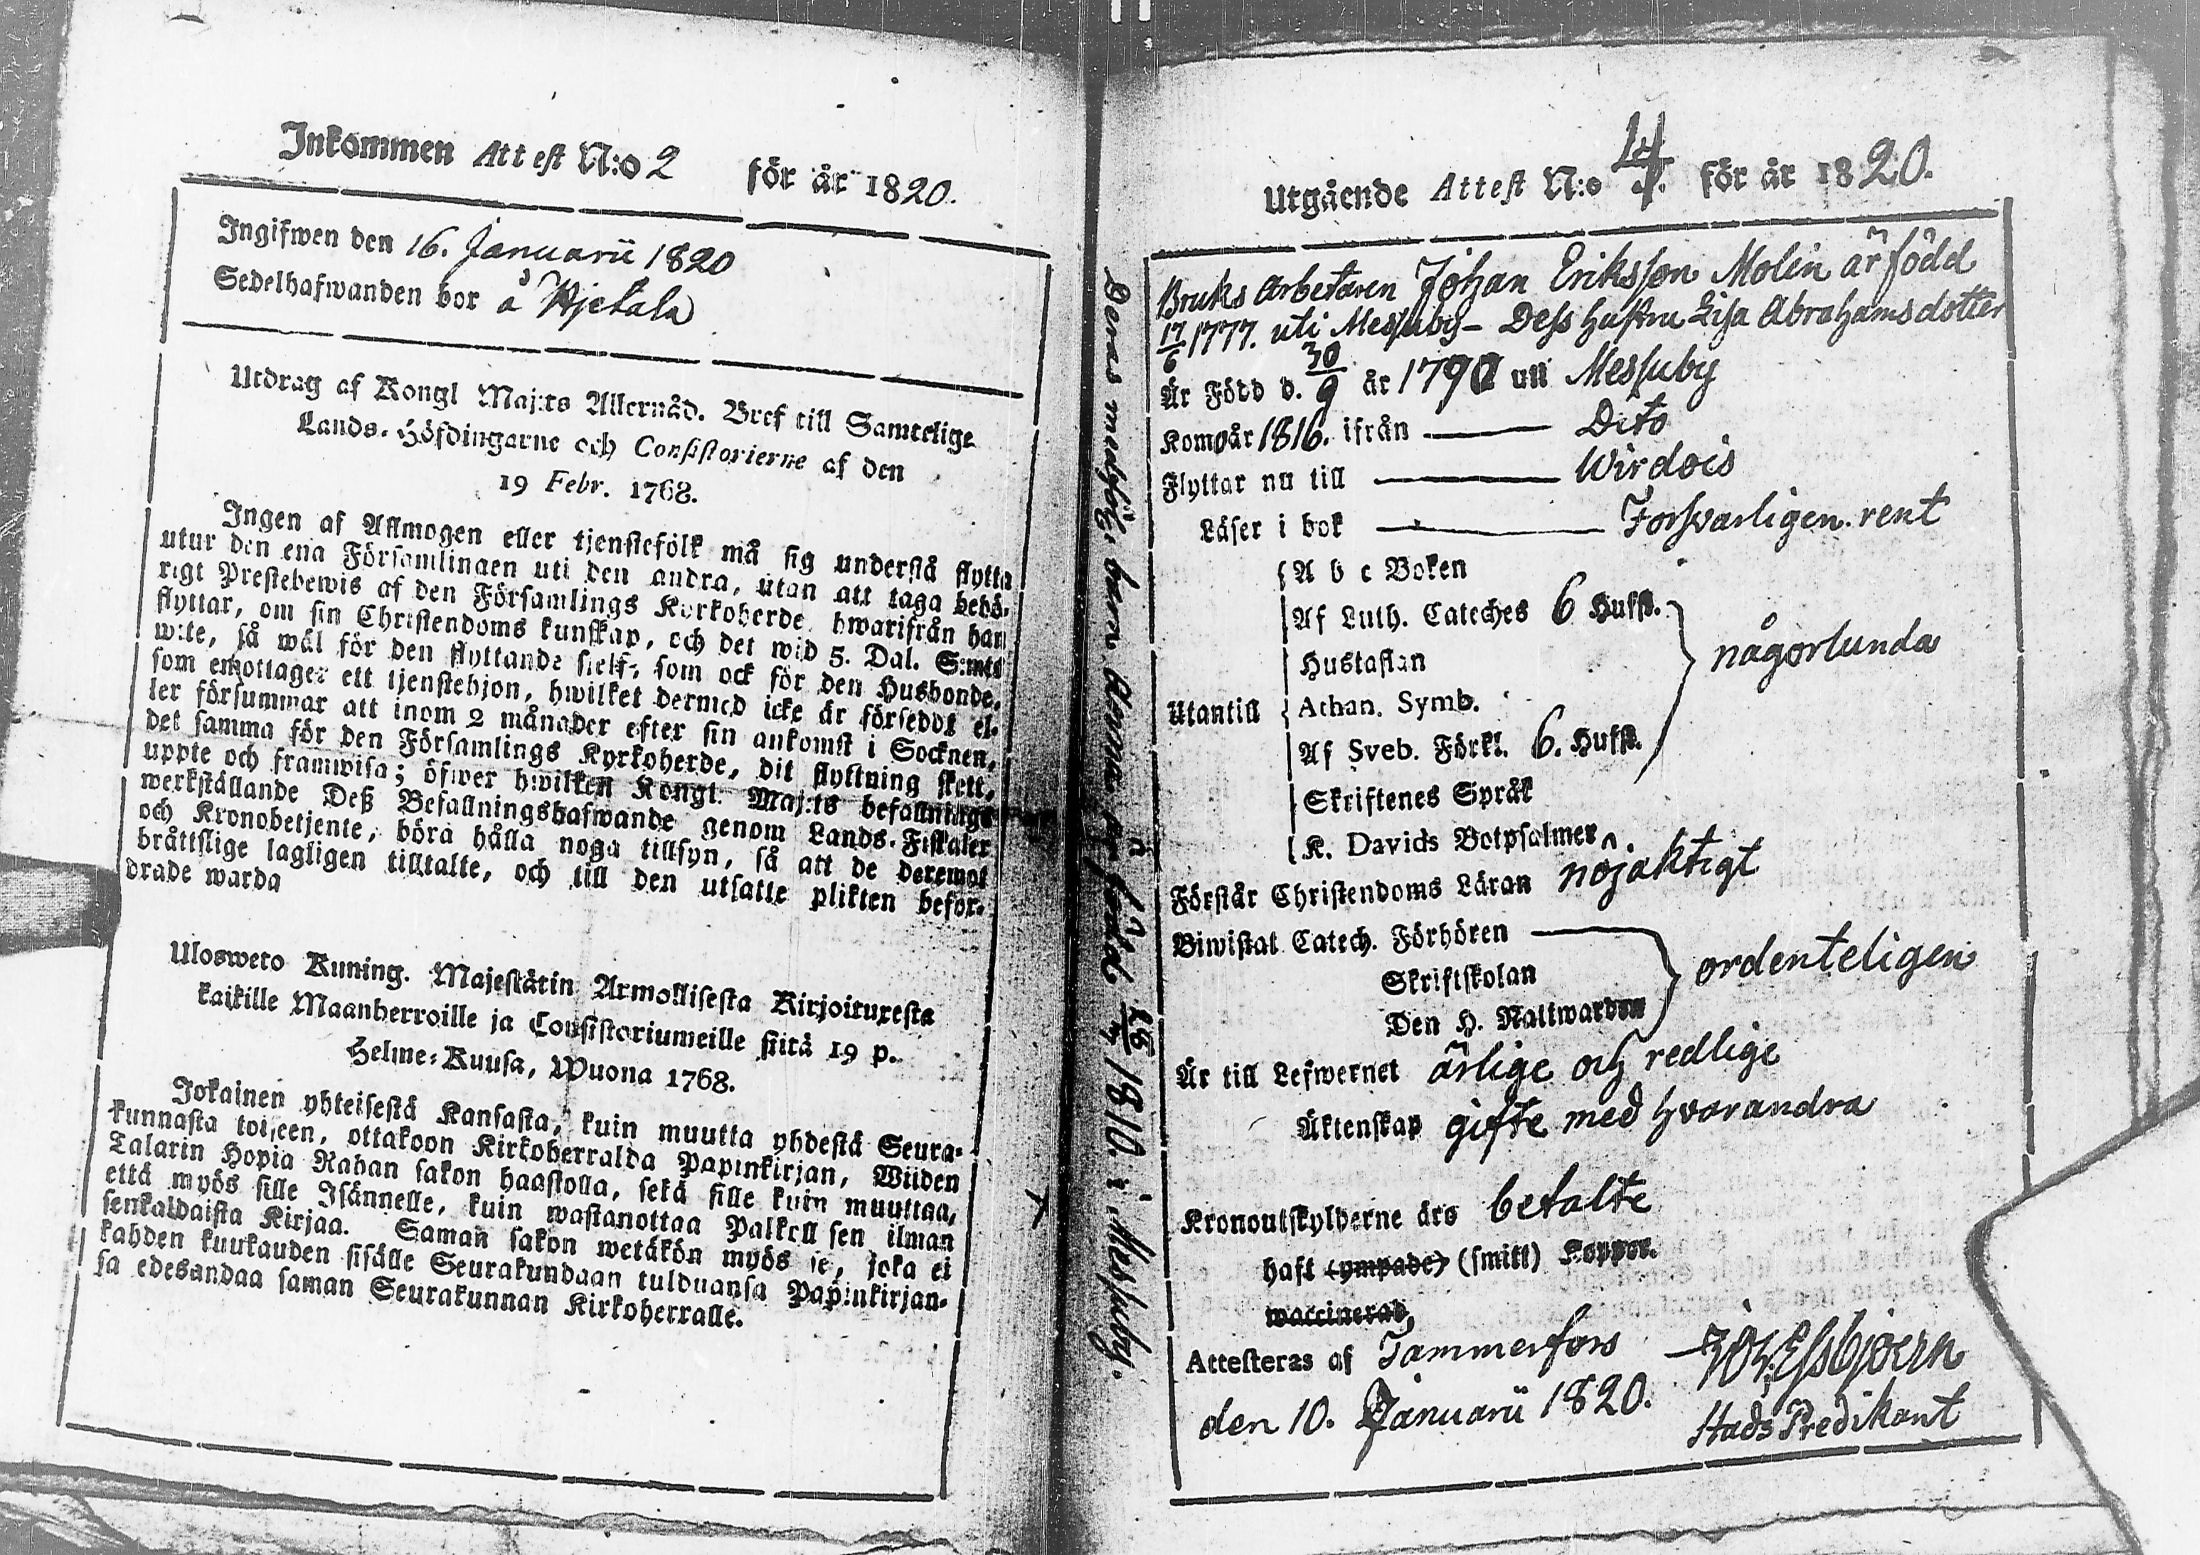 Inkommen Attest N:o 2 för år 1820.
Ingifwen den 16. Januarii 1820
Sedelhafwanden bor å Hjetala
Utdrag af Kongl Maj:ts Allernåd. Bref till Samtelige
Lands-Höfdingarne och Consistorierne af den
19 Febr. 1768.
Ingen af Allmogen eller tjenstefolk må sig understå flytta
utur den ena Församlingen uti den andra, utan att taga behö-
rigt Prestebewis af den Församlings Kyrkoherde, hwarifrån han
flyttar, om sin Christendoms kunskap, och det wid 5. Dal. S:mts
wite, så wäl för den flyttande sielf, som ock för den Husbonde,
som emottager ett tjenstehjon, hwilket dermed icke är försedt el-
ler försummar att inom 2 månader efter sin ankomst i Socknen,
det samma för den Församlings Kyrkoherde, dit flyttning skett,
uppte och framwisa; öfwer hwilken Kongl. Maj:ts befallnings
werkställande Deß Befallningshafwande genom Lands-Fiskaler
och Kronobetjente, böra hålla noga tillsyn, så att de deremot
bråttslige lagligen tilltalte, och till den utsatte plikten befor-
drade warda
Ulosweto Kuning. Majestätin Armollisesta Kirjoituxesta
kaikille Maanherroille ja Consistoriumeille siitä 19 p.
Helme-Kuusa, Wuona 1768.
Jokainen yhteisestä Kansasta, kuin muutta yhdestä Seura-
kunnasta toiseen, ottakoon Kirkoherralda Papinkirjan, Wiiden
Talarin Hopia Rahan sakon haastolla, sekä sille kuin muuttaa,
että myös sille Isännelle, kuin wastanottaa Palkoll sen ilman
senkaldaista Kirjaa. Saman sakon wetäkön myös se, joka ei
kahden kuukauden sisälle Seurakundaan tulduansa Papinkirjan-
sa edesandaa saman Seurakunnan Kirkoherralle.
Deras medfölj. barn Anna är född 28/7 1810. i Messuby.
Utgående Attest N:o 4. för år 1820.
Bruks Arbetaren Johan Eriksson Molin är född
17/6 1777. uti Messuby - Dess hustru Lisa Abrahamsdotter
Är Född d. 30/9 år 1790 uti Messuby
Kom år 1816. ifrån Dito
Flyttar nu till Wirdois
Läser i bok Forsvarligen rent
A b c Boken
Af Luth. Cateches 6 Hufst.
Hustaflan
någorlunda
Utantill Athan. Symb.
Af Sveb. Förkl. 6. Hufst.
Skriftenes Språk
K. Davids Botpsalmer
Förstår Christendoms Läran nöjaktigt
Biwistat Catech. Förhören
Skriftskolan ordenteligen
Den H. Nattwarden
Är till Lefwernet ärlige och redlige
Äktenskap gifte med hvarandra
Kronoutskylderne äro betalte
haft (ympade) (smitt) Koppor.
waccinerad,
Attesteras af Tammerfors
den 10. Januarii 1820.
Essbjoern
Stads Predikant